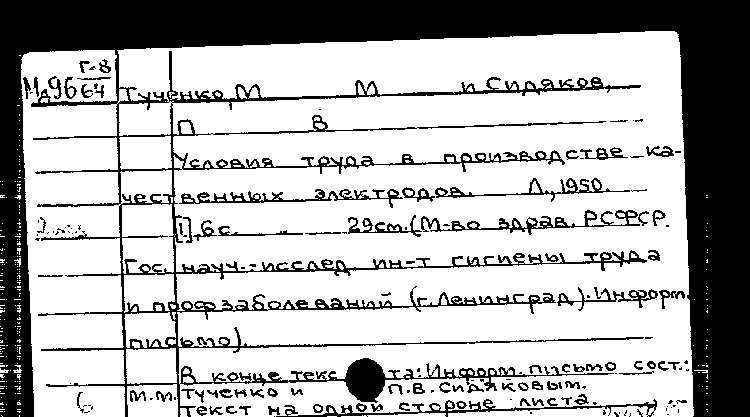 Г-8
Мд96 64 Тученко, М М и Сидяков,
П В
Условия труда в производстве ка-
чественных электродов. Л., 1950.
[1], 6 с. 29см. (М-во здрав. РСФСР.
Гос. науч.-исслед. ин-т гигиены труда
и профзаболеваний (г. Ленинград). Информ.
письмо).
В конце текс та: Информ. письмо сост.:
6 М.М. Тученко и П.В. Сидяковым.
Текст на одной стороне листа.